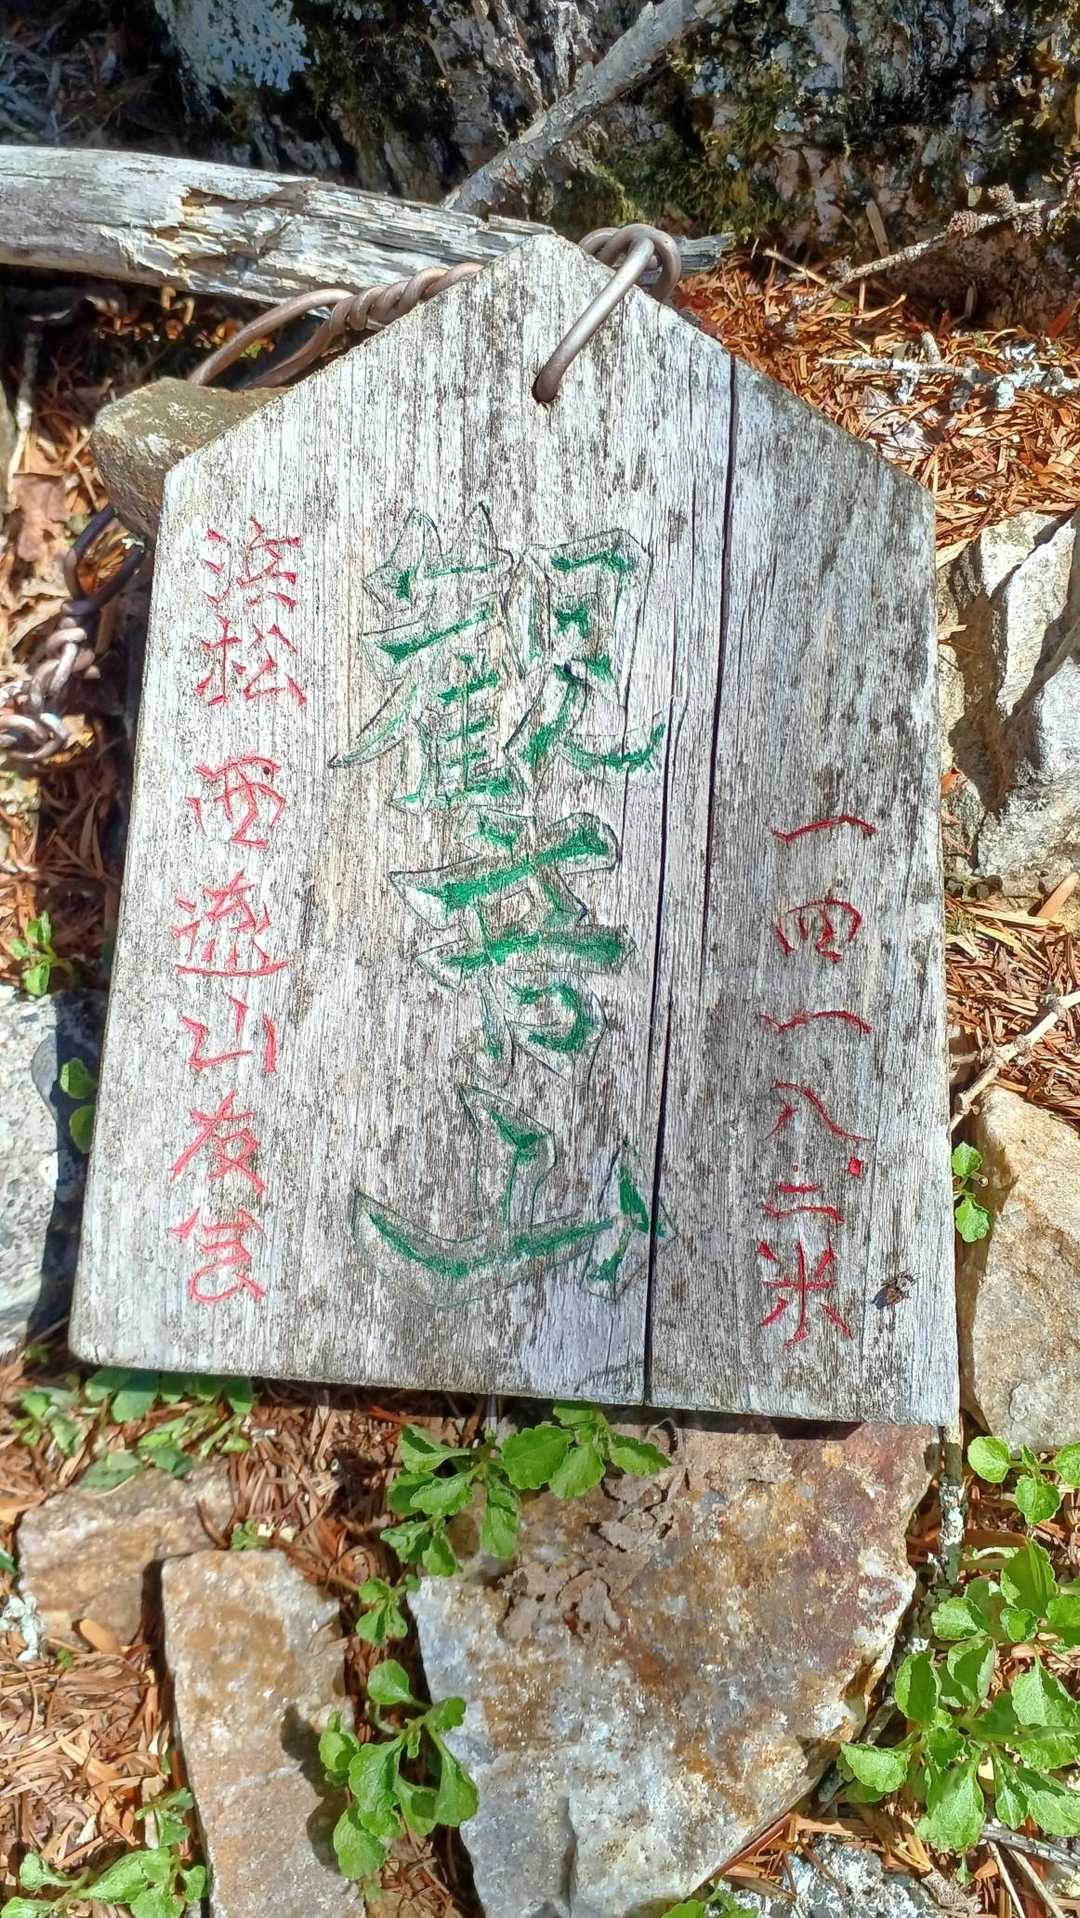 一四一八.二米
観音山
浜松 西遊山友会